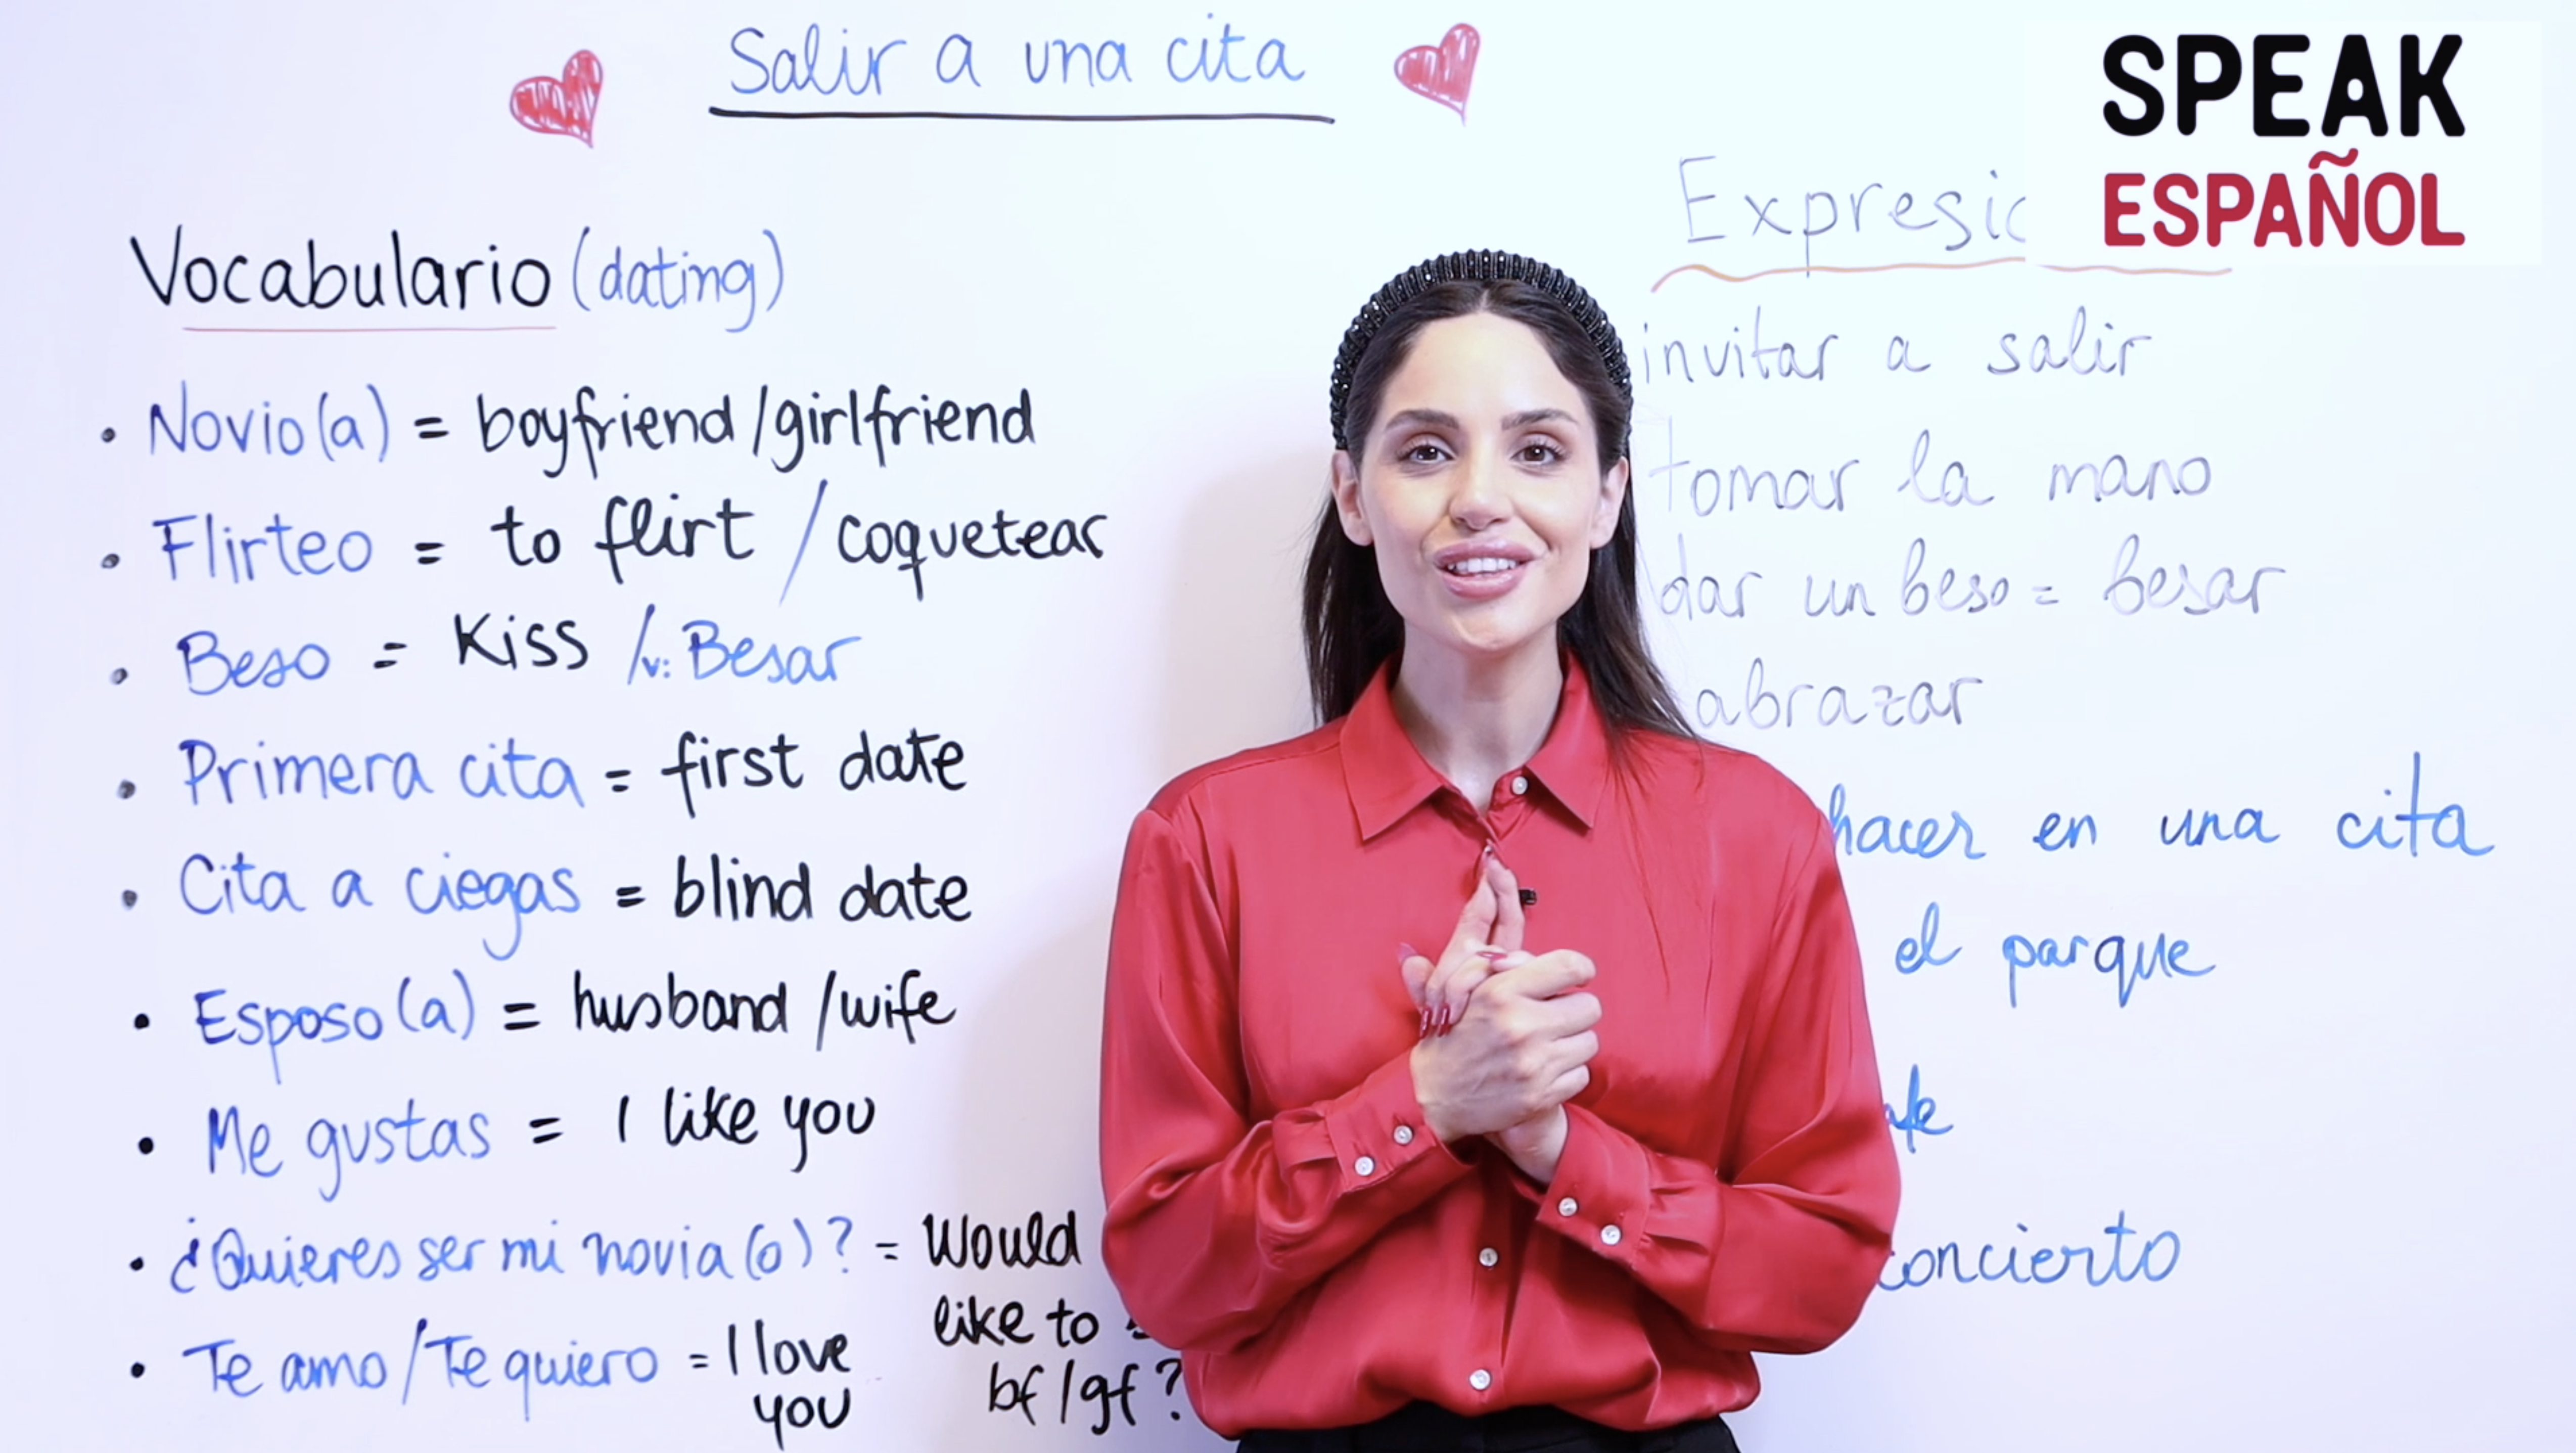 Salir a una cita
SPEAK
ESPAÑOL
Vocabulario (dating)
• Novio(a) = boyfriend/girlfriend
• Flirteo = to flirt / coquetear
• Beso = Kiss /v: Besar
• Primera cita = first date
• Cita a ciegas = blind date
• Esposo(a) = husband/wife
• Me gustas = I like you
• ¿Quieres ser mi novia(o)? = Would
like to
bf/gf?
• Te amo/Te quiero = I love
you
invitar a salir
tomar la mano
dar un beso = besar
abrazar
hacer en una cita
el parque
concierto